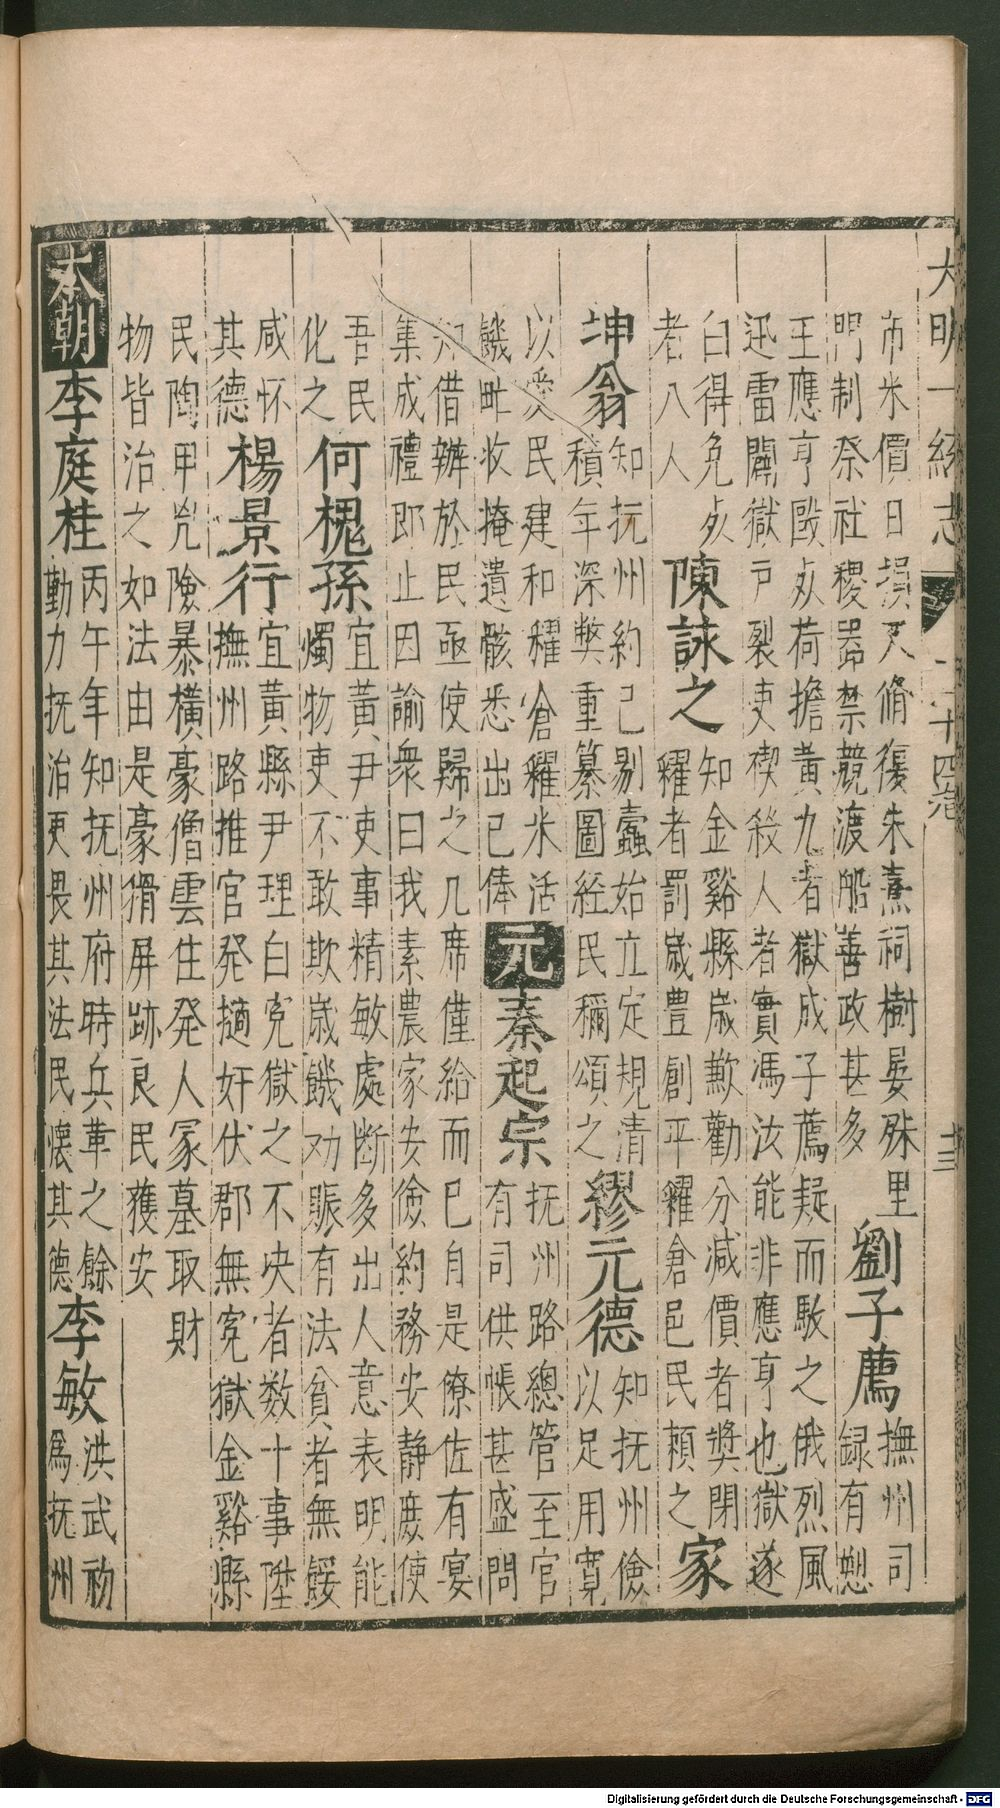 大明一統志 十四卷 十三
市米價日損又脩復朱熹祠樹晏殊里
門制祭社稷器禁競渡船善政甚多
劉子薦
撫州司
録有愬
王應亨毆死荷擔黃九者獄成子薦疑而駁之俄烈風
迅雷闢獄戶裂吏楔殺人者實馮汝能非應亨也獄遂
白得免死
者八人
陳詠之
知金谿縣歲歉勸分減價者獎閉
糴者罰歲豊創平糴倉邑民頼之
家
坤翁
知抚州約己剔蠹始立定規清
積年深弊重纂圖経民稱頌之
繆元德
知抚州儉
以足用寬
以愛民建和糴倉糴米活
饑甿收掩遺骸悉出已俸
元
秦起宗
抚州路總管至官
有司供帳甚盛問
知借辦於民亟使歸之几席僅給而已自是僚佐有宴
集成禮即止因諭衆曰我素農家安儉約務安静庶使
吾民
化之
何槐孫
宜黃尹吏事精敏處断多出人意表明能
燭物吏不敢欺歲饑劝賑有法貧者無餒
咸怀
其德
楊景行
宜黃縣尹理白寃獄之不决者数十事陞
撫州路推官発擿奸伏郡無寃獄金谿縣
民陶甲兇險暴橫豪僧雲住発人冢墓取財
物皆治之如法由是豪猾屏跡良民獲安
本朝
李庭桂
丙午年知抚州府時兵革之餘
勤力抚治吏畏其法民懷其德
李敏
洪武初
爲抚州
Digitalisierung gefördert durch die Deutsche Forschungsgemeinschaft - DFG